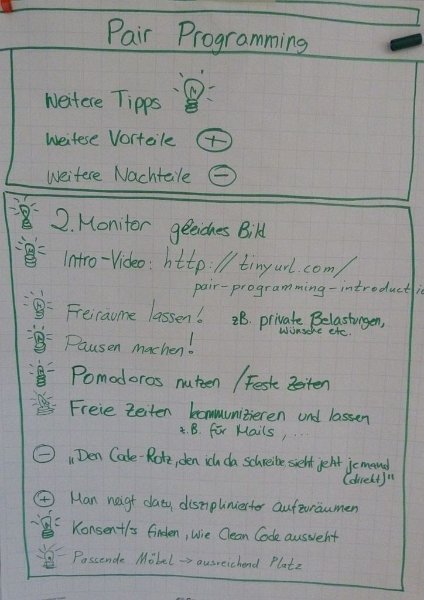 Pair Programming
Weitere Tipps
Weitere Vorteile +
Weitere Nachteile -
2. Monitor gleiches Bild
Intro-Video: http://tinyurl.com/
pair-programming-introductio
Freiräume lassen! zB. private Belastungen,
Wünsche etc.
Pausen machen!
Pomodoros nutzen / Feste Zeiten
Freie Zeiten kommunizieren und lassen
z.B. für Mails, ...
- "Den Code-Rotz, den ich da schreibe sieht jetzt jemand
(direkt)"
+ Man neigt dazu, disziplinierter aufzuräumen
Konsent/s finden, wie Clean Code aussieht
Passende Möbel → ausreichend Platz